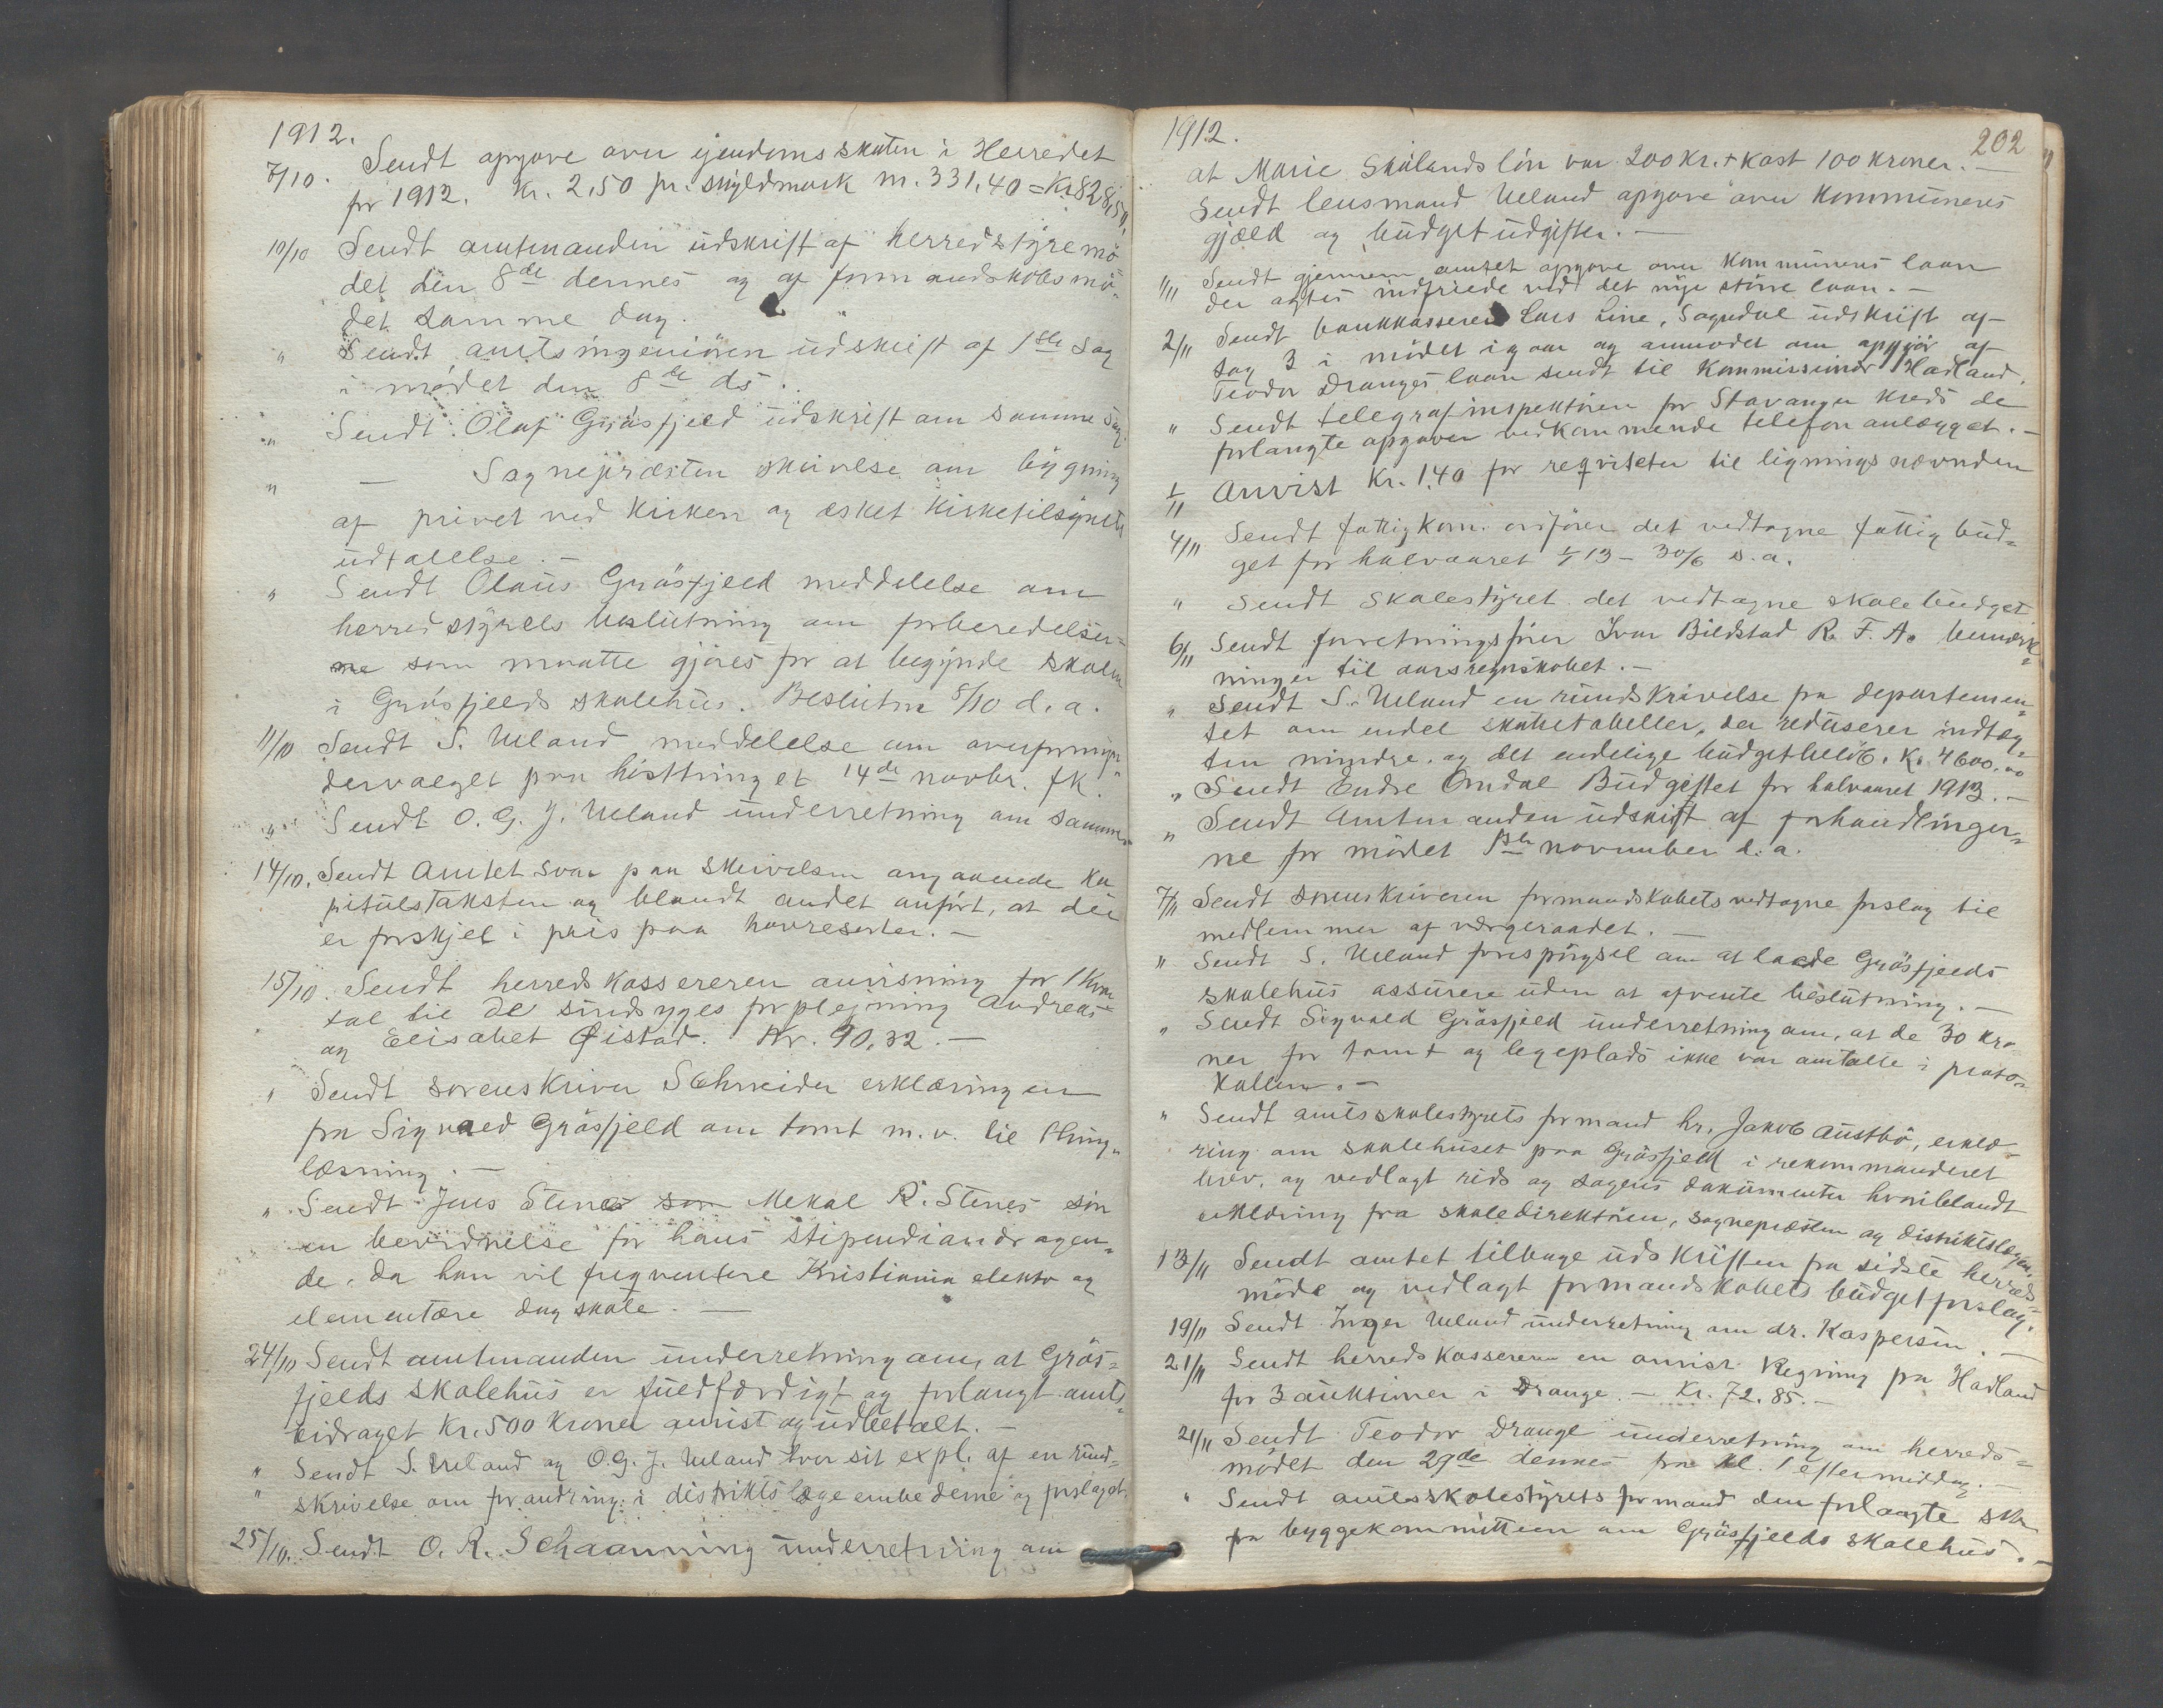 1912.
7/10. Sendt opgave over ejendomsskaten i Herredet
for 1912. Kr. 2,50 pr. skyldmark m. 331,40 = Kr. 828,50.
10/10 Sendt amtmanden udskrift af herredstyremö-
det den 8de dennes og af formandskabsmö-
det samme dag.
" Sendt amtsingeniören udskrift af 1ste sag
i mödet den 8de ds.
" Sendt Olaf Gråsfjeld udskrift om samme sag.
" — Sognepræsten skrivelse om bygning
af privet ved kirken og æsket kirketilsynets
udtalelse. —
" Sendt Olaus Gråsfjeld meddelelse om
herredstyrets beslutning om forberedelser-
ne som maatte gjöres for at begynde skolen
i Gråsfjelds skolehus. Beslutn 8/10 d.a.
11/10 Sendt S. Ueland meddelelse om overformyn-
dervalget paa høsttinget 14de novbr. fk.
" Sendt O. G. J. Ueland underretning om samme
14/10. Sendt Amtet svar paa skrivelsen angaaende ka-
pitulstaksten og blandt andet anfört, at der
er forskjel i pris paa havresorter. —
15/10. Sendt herredskassereren anvisning for 1 kvar
tal til de sindsyges forplejning Andreas
og Elisabet Øistad. Kr. 90,32. —
" Sendt sorenskriver Schneider erklæringen
fra Sigvald Gråsfjeld om tomt m.v. til thing-
læsning. —
" Sendt Jens Stenes som Mekal R. Stenes sön
en bevidnelse for hans stipendiandragen-
de, da han vil freqventere Kristiania elektro og
elementære dagskole. —
24/10 Sendt amtmanden underretning om, at Grås-
fjelds skolehus er fuldfærdigt og forlangt amts-
bidraget Kr. 500 Kroner anvist og udbetalt. —
" Sendt S. Ueland og O.G.J. Ueland hver sit expl. af en rund-
" skrivelse om forandring i distriktslægeembederne og forslaget.
25/10. Sendt O. R. Schaanning underretning om
1912. 202
at Marie Skålands lön var 200 kr. + kost 100 kroner. —
Sendt lensmand Ueland opgave over kommunens
gjæld og budgetudgifter. —
1/11 Sendt gjennem amtet opgave over kommunens laan
der agtes indfriede ved det nye större laan. —
2/11 Sendt bankkasserer Lars Line, Sogndal udskrift af
sag 3 i mödet igaar og anmodet om opgjör af
Teodor Dranges laan sendt til Kommissionær Hadland.
" Sendt telegrafinspektören for Stavanger kreds de
forlangte opgaver vedkommende telefonanlægget. —
1/11 Anvist Kr. 1.40 for reqvisiter til ligningsnævnden
4/11 Sendt fattigkom. ordförer det vedtagne fattigbud-
get for halvaaret 1/1 13 – 30/6 s.a.
" Sendt skolestyret det vedtagne skolebudget
6/11 Sendt forretningsförer Ivar Bildstad R. F. A. bemærk-
ninger til aarsregnskabet. —
" Sendt S. Ueland en rundskrivelse fra departemen-
tet om endel skattetabeller, der reduserer indtæg-
ten mindre, og det endelige budgetbelöb. Kr. 4600.00
" Sendt Endre Omdal Budgettet for halvaaret 1913. —
" Sendt Amtmanden udskrift af forhandlinger-
ne for mödet 1ste november d.a.
7/11 Sendt sorenskriveren formandskabets vedtagne forslag til
medlemmer af værgeraadet. —
" Sendt S. Ueland forespörgsel om at lade Gråsfjelds
skolehus assurere uden at afvente beslutning. —
" Sendt Sigvald Gråsfjeld underretning om, at de 30 kro-
ner for tomt og legeplads ikke var omtalte i proto-
kollen. —
" Sendt amtsskolestyrets formand hr. Jakob Austbö, erklæ-
ring om skolehuset paa Gråsfjeld i rekommanderet
brev, og vedlagt rids og sagens dokumenter hvoriblandt
erklæring fra skoledirektören, sognepræsten og distriktslægen.
13/11 Sendt amtet tilbage udskriften fra sidste herreds-
möde og vedlagt formandskabets budgetforslag.
19/11 Sendt Inger Ueland underretning om dr. Kaspersen. —
21/11 Sendt herredskassereren en anvist Regning fra Hadland
for 3 auktioner i Drange. — Kr. 72.85. —
21/11 Sendt Teodor Drange underretning om herreds-
mödet den 29de dennes fra kl. 1 eftermiddag. —
" Sendt amtsskolestyrets formand den forlangte skr.
fra byggekommitteen om Gråsfjelds skolehus. —